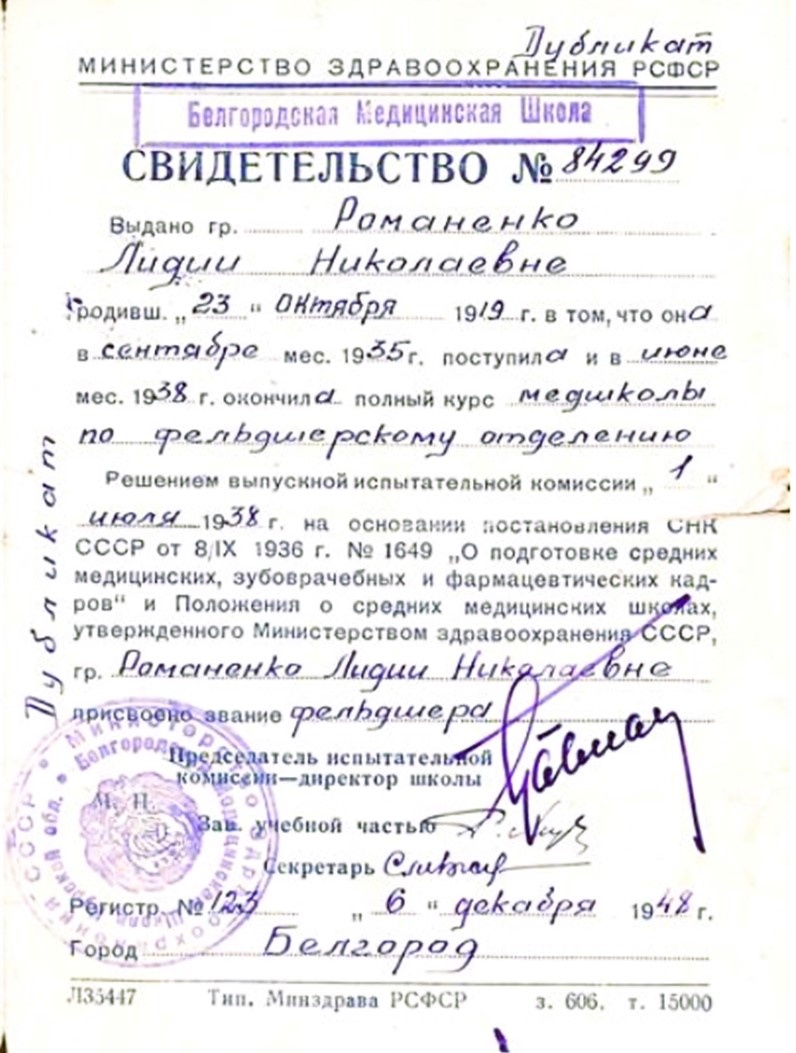 Дубликат
МИНИСТЕРСТВО ЗДРАВООХРАНЕНИЯ РСФСР
Белгородская Медицинская Школа
СВИДЕТЕЛЬСТВО № 84299
Выдано гр. Романенко
Лидии Николаевне
родивш. „23" октября 1919 г. в том, что она
в сентябре мес. 1935 г. поступила и в июне
мес. 1938 г. окончила полный курс медшколы
по фельдшерскому отделению
Решением выпускной испытательной комиссии „1"
июля 1938 г. на основании постановления СНК
СССР от 8/IX 1936 г. № 1649 „О подготовке средних
медицинских, зубоврачебных и фармацевтических кад-
ров" и Положения о средних медицинских школах,
утвержденного Министерством здравоохранения СССР,
гр. Романенко Лидии Николаевне
присвоено звание фельдшера
Дубликат
Председатель испытательной
комиссии—директор школы
М. П.
Зав. учебной частью
Секретарь
Регистр. № 123 „6" декабря 1948 г.
Город Белгород
Л35447 Тип. Минздрава РСФСР з. 606. т. 15000